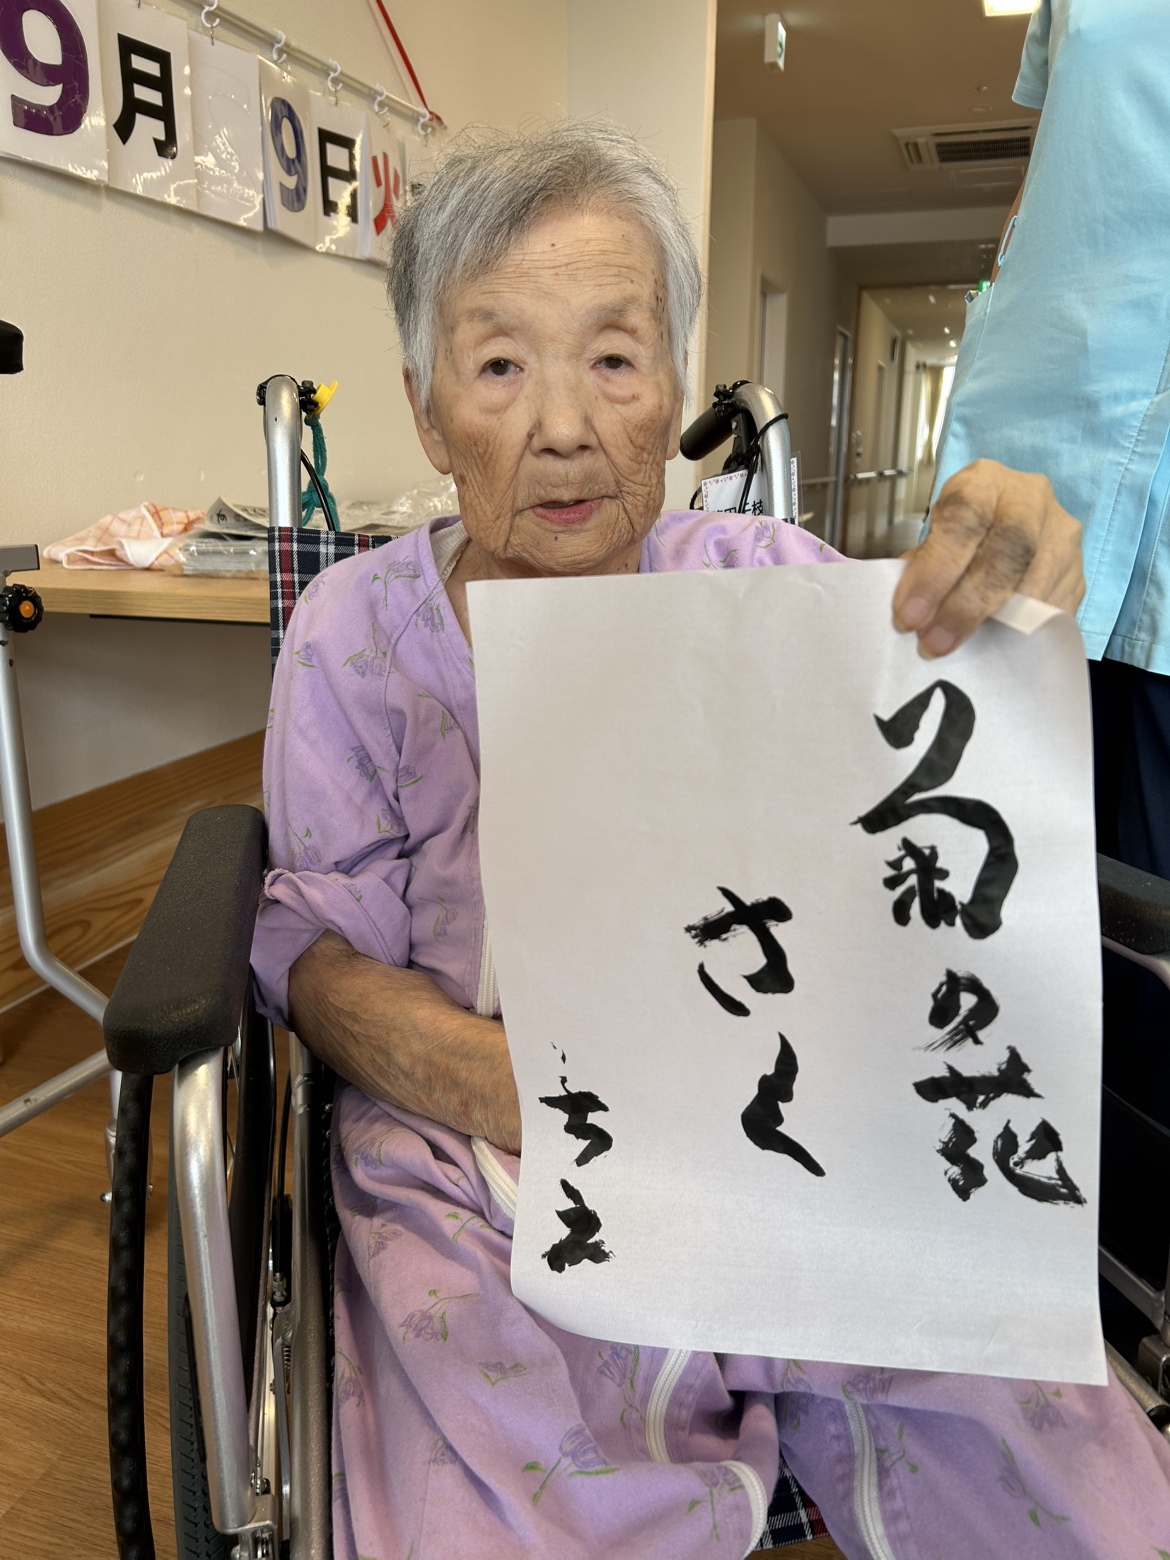 9月 9日 火
菊の花
さく